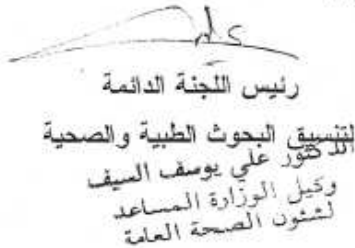 رئيس اللجنة الدائمة
لتنسيق البحوث الطبية والصحية
الدكتور علي يوسف السيف
وكيل الوزارة المساعد
لشئون الصحة العامة